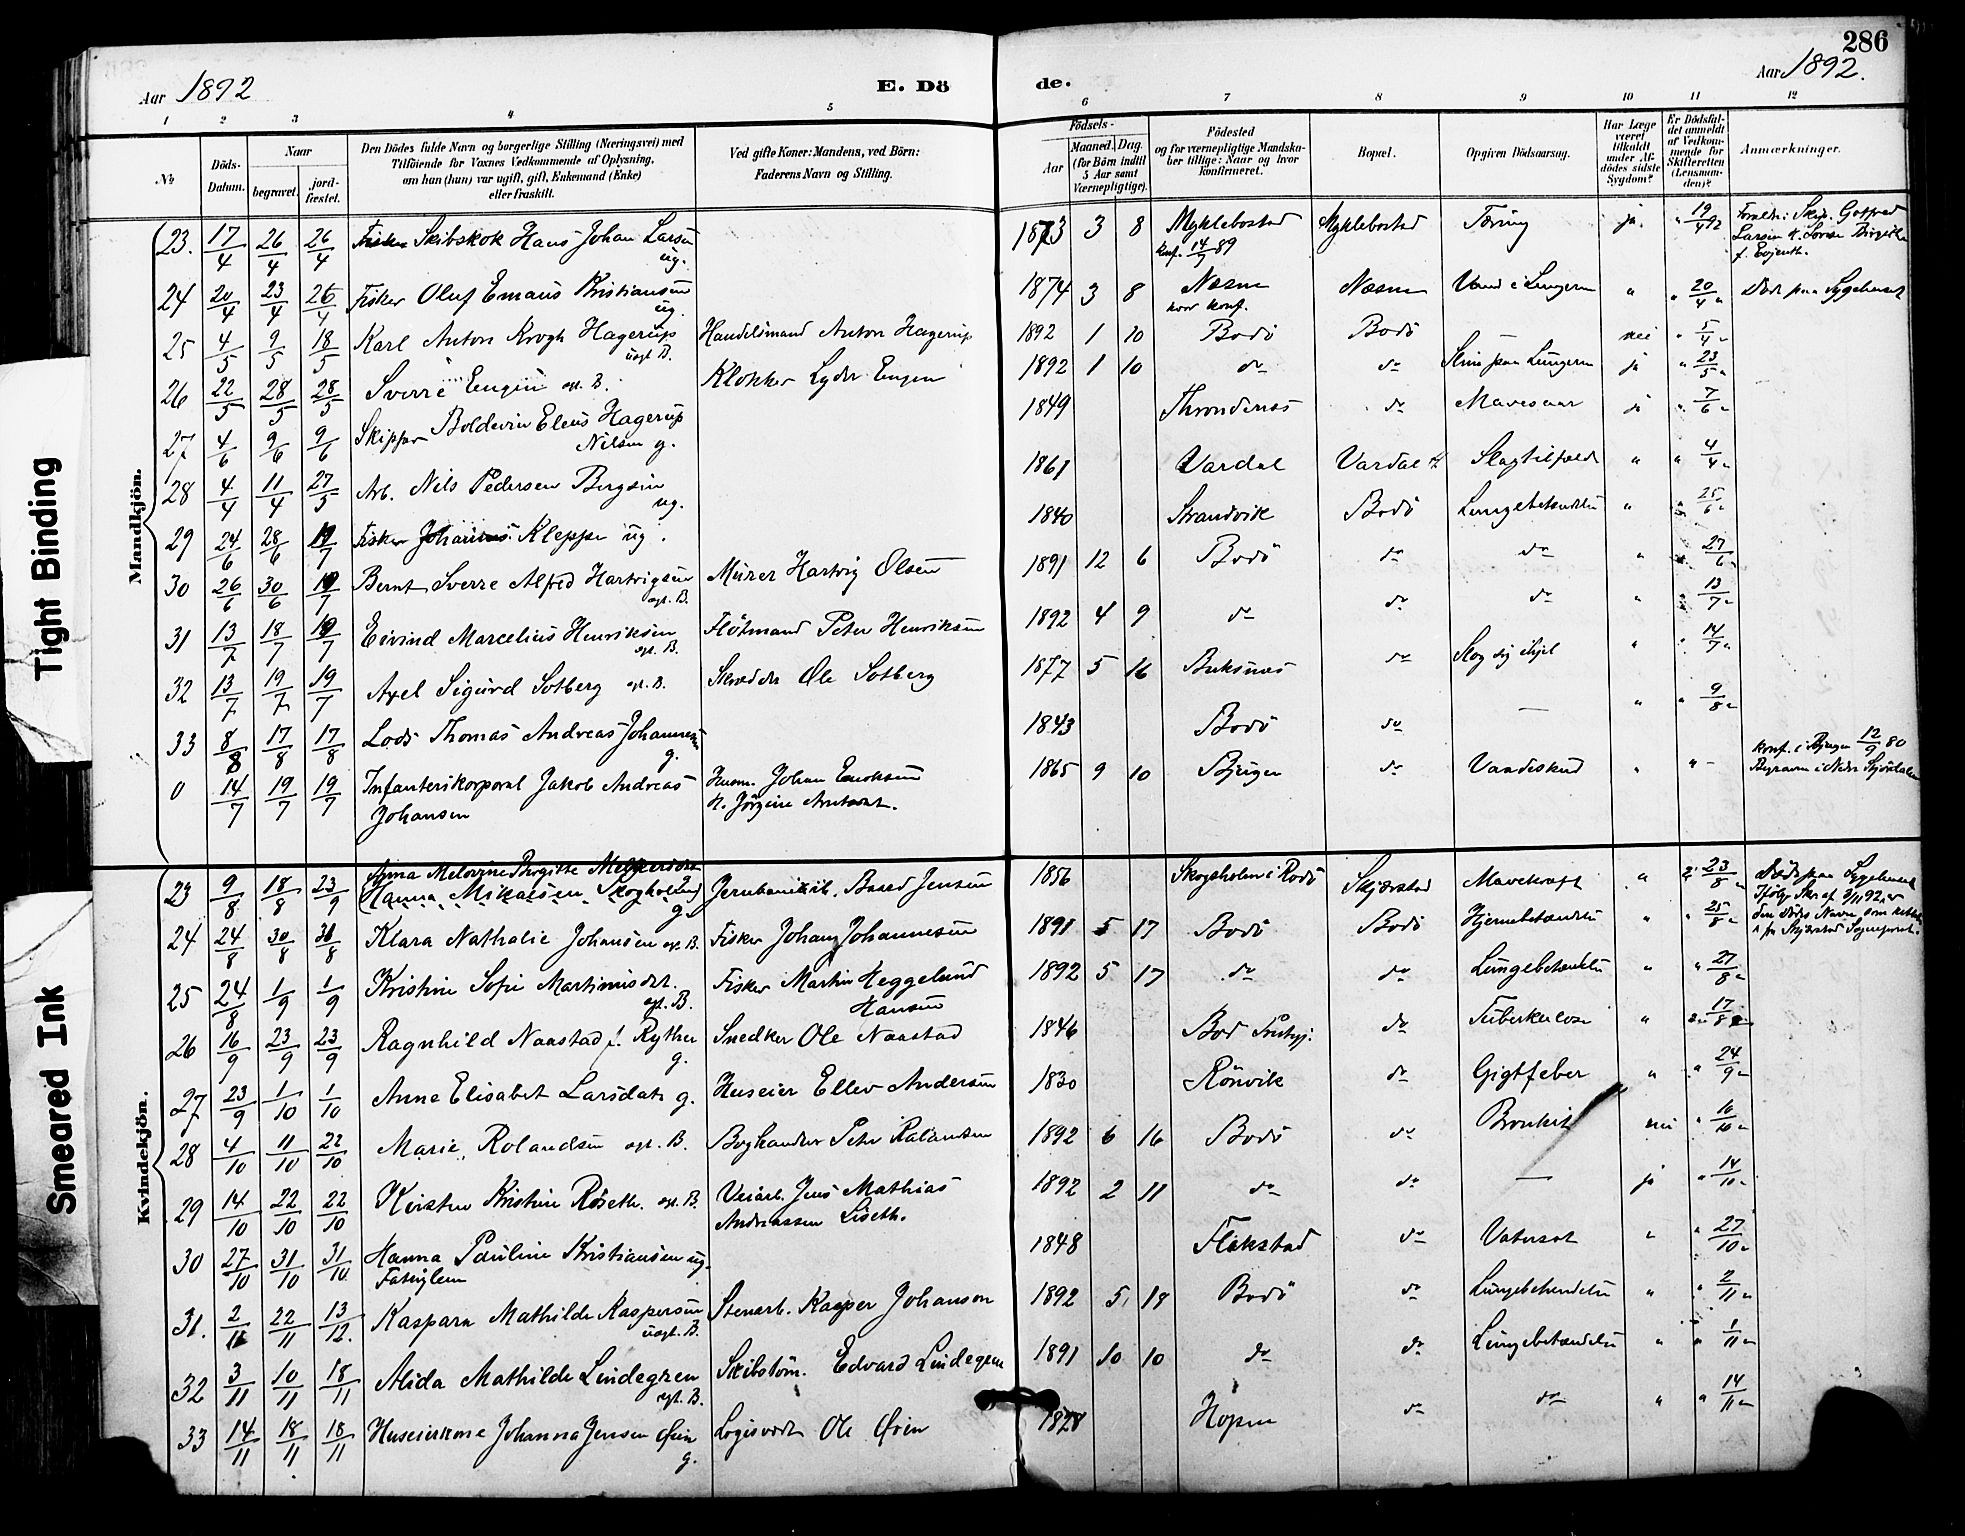 286
Aar 1892
E. Dö
de.
Aar 1892.
1 2 3 4 5 6 7 8 9 10 11 12
№
Döds-
Datum.
Naar
begravet.
jord-
fæstet.
Den Dödes fulde Navn og borgerlige Stilling (Næringsvei) med
Tilföiende for Voxnes Vedkommende af Oplysning,
om han (hun) var ugift, gift, Enkemand (Enke)
eller fraskilt.
Ved gifte Koner: Mandens, ved Börn:
Faderens Navn og Stilling.
Födsels-
Aar
Maaned. Dag.
(for Börn indtil
5 Aar samt
Værnepligtige).
Födested
og for værnepligtige Mandska-
ber tillige: Naar og hvor
konfirmeret.
Bopæl.
Opgiven Dödsaarsag.
Har Læge
været
tilkaldt
under Af-
dödes sidste
Sygdom?
Er Dödsfal-
det anmeldt
af Vedkom-
mende for
Skifteretten
(Lensman-
den)?
Anmærkninger.
Mandkjön.
23. 17/4 26/4 26/4 Skibskok Hans Johan Larsen ug. 1873 3 8 Myklebostad Myklebostad Tæring ja. 19/4 92
konf. 89
24 20/4 23/4 26/4 Fisker Oluf Emaus Kristiansen ug. 1874 3 8 Næsne Næsne Vand i Lungerne " " 20/4 " Död paa Sygehuset
hvor konf.
25 4/5 9/5 18/5 Karl Anton Krogh Hagerup Handelsmand Anton Hagerup 1892 1 10 Bodö Bodö — nei " 5/4 "
26 22/5 28/5 28/5 Sverre Engen Klokker Lyder Engen 1892 1 10 do do Slim paa Lungerne ja " 23/5 "
27 4/6 9/6 9/6 Skipper Boldevin Eleus Hagerup
Nilsen g. 1849 Throndenæs do Mavesaar ja " 7/6 "
28 4/4 11/4 27/5 Arb. Nils Pedersen Bergsin ug. 1861 Vardal Vardal Slagtilfælde " " 4/4 "
29 24/6 28/6 Fisker Johannes Kleppe ug. 1840 Strandvik Bodö Lungebetændelse " " 25/6 "
30 26/6 30/6 Bernt Sverre Alfred Hartvigsen Murer Hartvig Olsen 1891 12 6 Bodö do do " " 27/6 "
31 13/7 18/7 Eivind Marcelius Henriksen Flötmand Peter Henriksen 1892 4 9 do do do " " 13/7 "
32 13/7 19/7 19/7 Axel Sigurd Solberg Skrædder Ole Solberg 1877 5 16 Buksnæs do Slog sig ihjel " " 14/7 "
33 8/8 17/8 17/8 Lods Thomas Andreas Johannesen g. 1843 Bodö do — " " 9/8 "
0 14/7 19/7 19/7 Infanterikorporal Jakob Andreas Husm. Johan 1865 9 10 Bjugn do Vaadeskud " " — konf. i Bjugn 12/9 80
Johansen
Kvindekjön.
23 9/8 18/8 23/9 Anna Melovine Birgitte
(Hanna Mikalsen Skogholm) g. Baard Jensen 1856 Skogsholm i Rödö Skjærstad Mavekræft " 23/8 " Död paa Sygehuset
24 24/8 30/8 Klara Nathalie Johansen Fisker Johan Johannesen 1891 5 17 Bodö Bodö Hjernebetændelse " " 25/8 "
25 24/8 1/9 1/9 Kristine Sofie Martinusdt. Fisker Martin Heggelund
Hansen 1892 5 17 do do Lungebetændelse " " 27/8 "
26 16/9 23/9 23/9 Ragnhild Naastad f. Ryther g. Snedker Ole Naastad 1846 do Tuberkulose "
27 23/9 1/10 1/10 Anne Elisabet Larsdatr g. Huseier Ellev Andersen 1830 Rönvik do Gigtfeber " " 24/9 "
28 4/10 11/10 22/10 Marie Rolandsen Boghandler Peter 1892 6 16 Bodö do Bronkit nei "
29 14/10 22/10 22/10 Kirsten Kristine Jens Mathias
Andreassen 1892 2 11 do do — ja " 14/10 "
30 27/10 31/10 31/10 Hanna Pauline Kristiansen ug. 1848 Flakstad do Vatersot " " 27/10 "
Fattiglem
31. 2/11 22/11 13/12. Kaspara Mathilde Kaspersen Stenarb. Kasper Johanson 1892 5 18 Bodö do Lungebetændelse " " 2/11 "
32 3/11 10/11 18/11 Alida Mathilde Lindegren Skibstöm. Edvard Lindegren 1891 10 10 do do Lungebetændelse " " 1/11 "
33 14/11 18/11 18/11 Huseierkone Johanna Jensen Öien g. Logisvert Ole Öien 1828 Hopen do do " " 14/11 "
Tight Binding
Smeared Ink